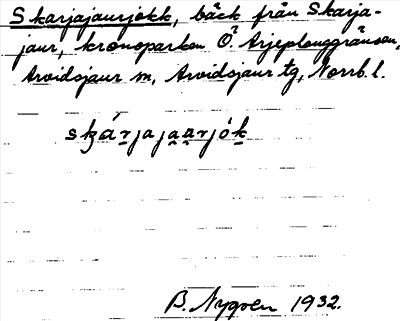 Skarjajaurjokk, bäck från Skarja-
jaur, kronoparken Ö. Arjeplouggränsen,
Arvidsjaur sn, Arvidsjaur tg, Norrb. l.
skárjajaarjók
B. Nygren 1932.